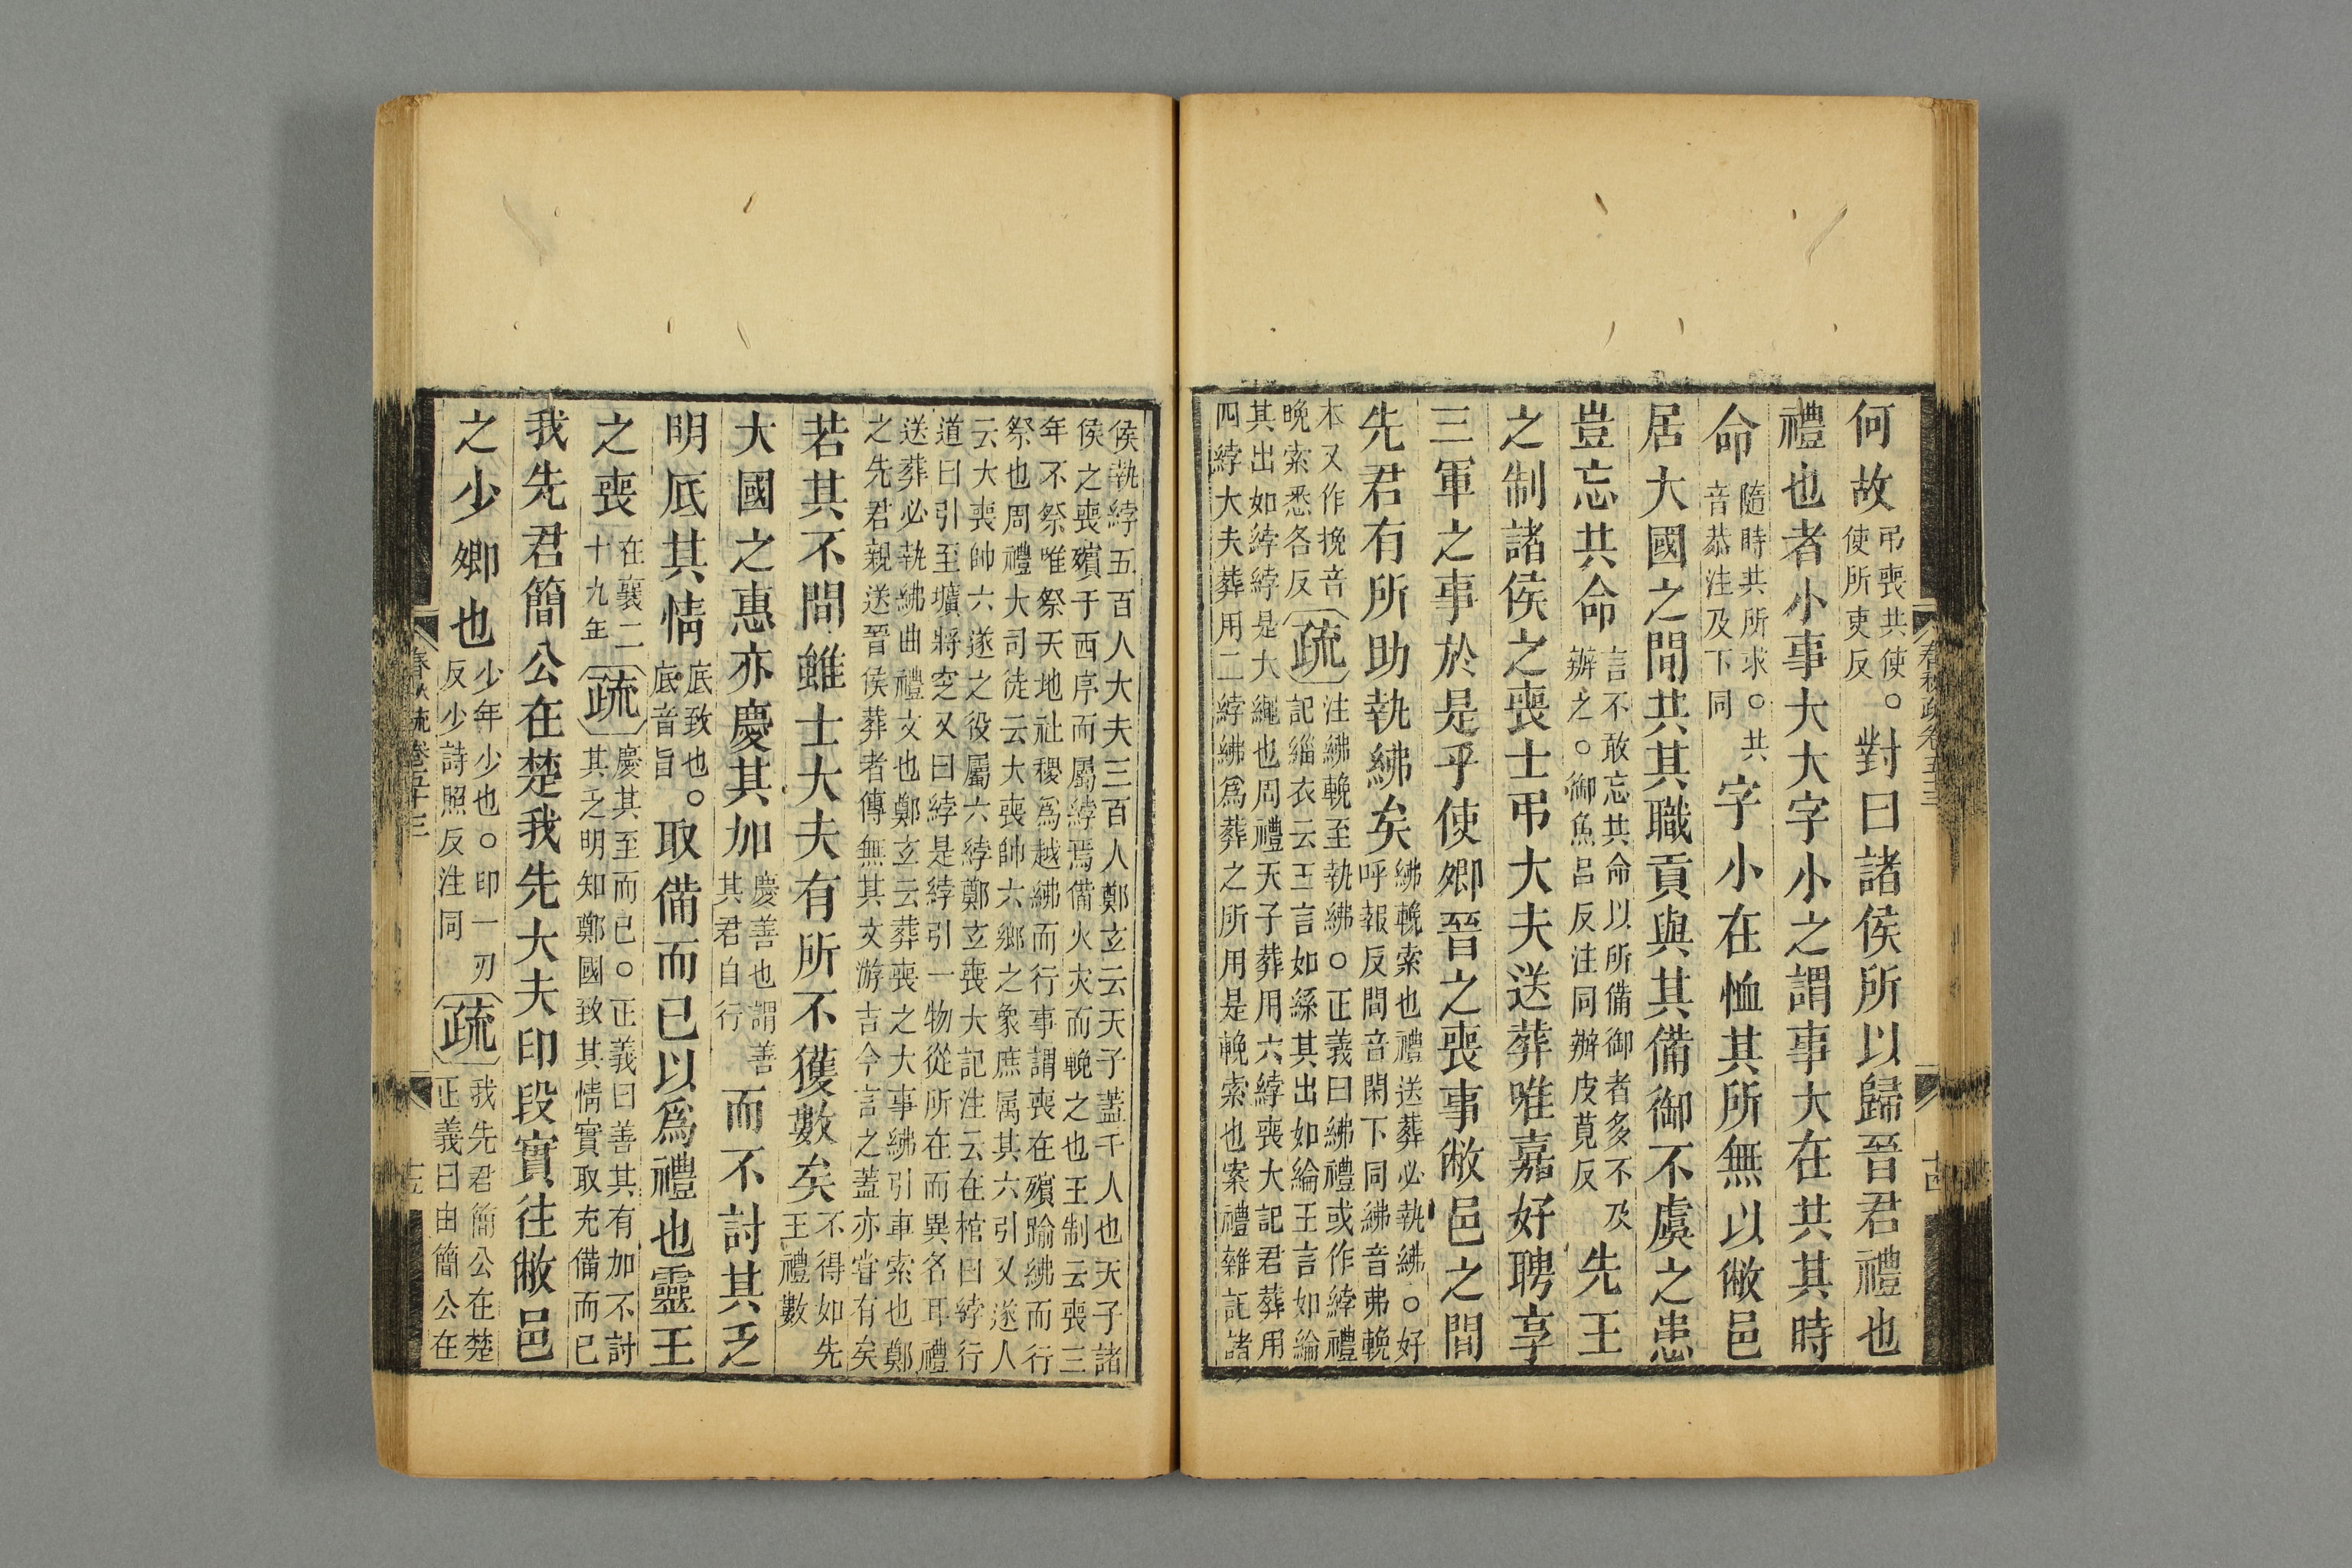 何故弔喪共使。使所吏反對曰諸侯所以歸晉君禮也
禮也者小事大大字小之謂事大在共其時
命隨時共所求。共音恭注及下同字小在恤其所無以敝邑
居大國之間共其職貢與其備御不虞之患
豈忘共命言不敢忘共命以所備御者多不及辦之。御魚呂反注同辦皮莧反先王
之制諸侯之喪士弔大夫送葬唯嘉好聘享
三軍之事於是乎使卿晉之喪事敝邑之間
先君有所助執紼矣紼輓索也禮送葬必執紼。好呼報反間音閑下同紼音弗輓
本又作挽音晚索悉各反疏注紼輓至執紼。正義曰紼禮或作綍禮記緇衣云王言如絲其出如綸王言如綸
其出如綍綍是大繩也周禮天子葬用六綍喪大記君葬用
四綍大夫葬用二綍紼爲葬之所用是輓索也案禮雜記諸
春秋疏卷五十三
十四
侯執綍五百人大夫三百人鄭玄云天子蓋千人也天子諸
侯之喪殯于西序而屬綍焉備火灾而輓之也王制云喪三
年不祭唯祭天地社稷爲越紼而行事謂喪在殯踰紼而行
祭也周禮大司徒云大喪帥六鄉之衆庶属其六引又遂人
云大喪帥六遂之役屬六綍鄭玄喪大記注云在棺曰綍行
道曰引至壙將窆又曰綍是綍引一物從所在而異名耳禮
送葬必執紼曲禮文也鄭玄云葬喪之大事紼引車索也鄭
之先君親送晉侯葬者傳無其文游吉今言之蓋亦嘗有矣
若其不間雖士大夫有所不獲數矣不得如先王禮數
大國之惠亦慶其加慶善也謂善其君自行而不討其乏
明厎其情底致也。底音旨取備而已以爲禮也靈王
之喪在襄二十九年疏慶其至而已。正義曰善其有加不討其乏明知鄭國致其情實取充備而已
我先君簡公在楚我先大夫印段實往敝邑
之少卿也少年少也。印一刃反少詩照反注同疏我先君簡公在楚正義曰由簡公在
春秋疏卷五十三
十五